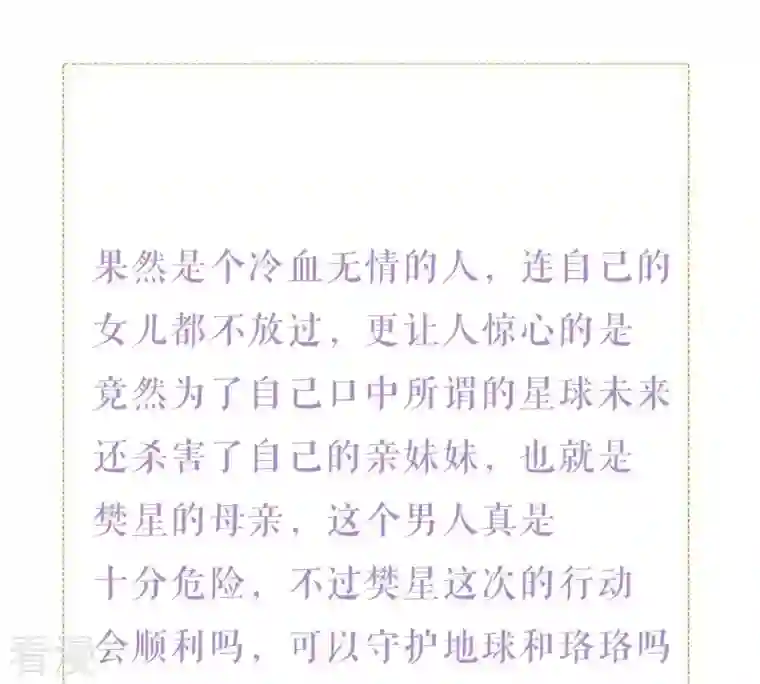 果然是个冷血无情的人，连自己的
女儿都不放过，更让人惊心的是
竟然为了自己口中所谓的星球未来
还杀害了自己的亲妹妹，也就是
樊星的母亲，这个男人真是
十分危险，不过樊星这次的行动
会顺利吗，可以守护地球和珞珞吗
看漫